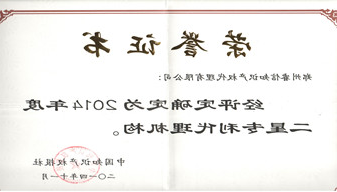 荣誉证书
郑州睿信知识产权代理有限公司：
经评定确定为2014年度
二星专利代理机构。
中国知识产权报社
二〇一四年十一月